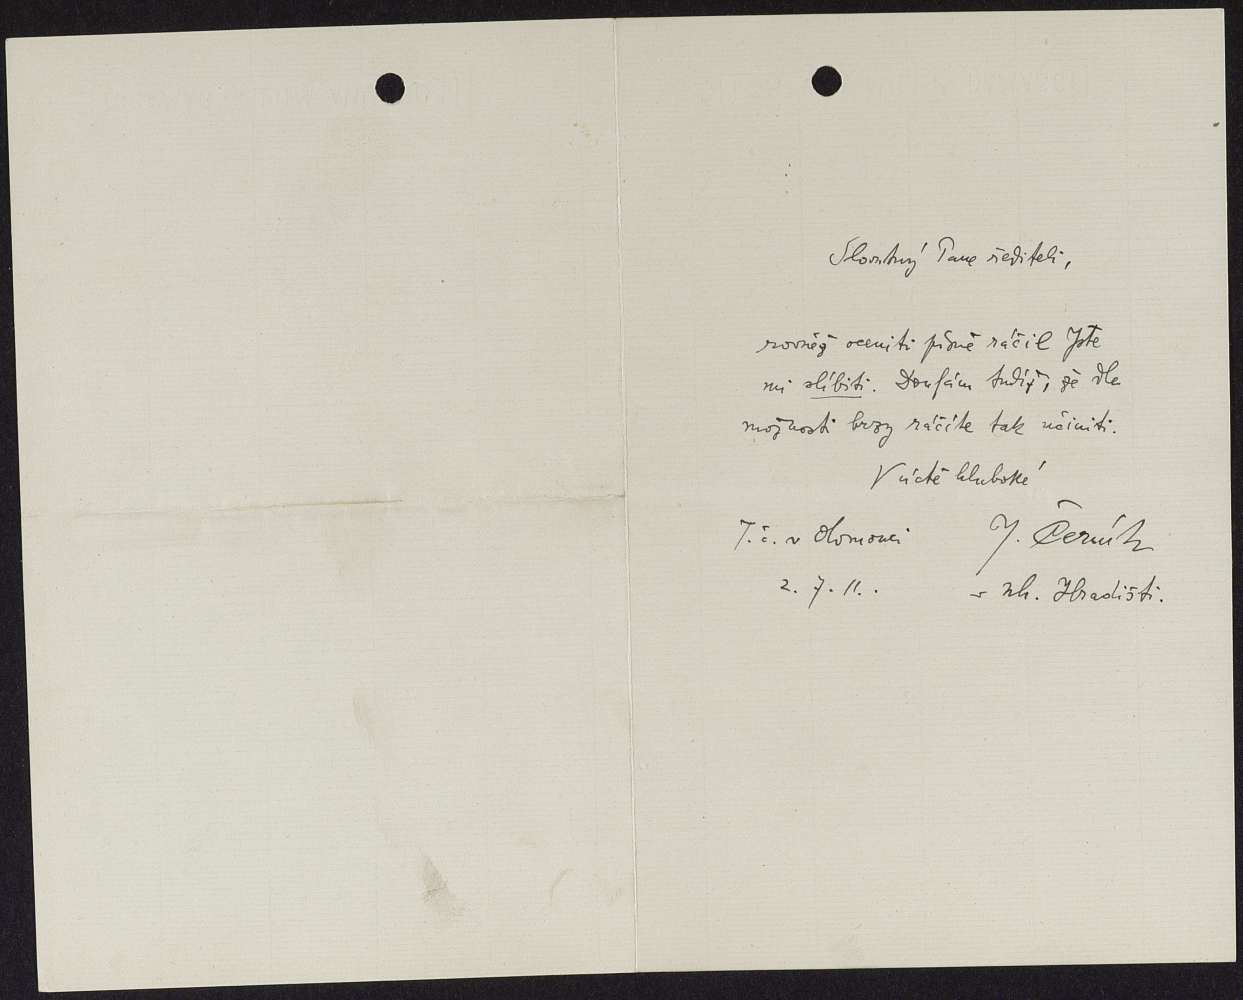 Slovutný Pane řediteli,
rovněž oceniti písně ráčil Jste
mi slíbiti. Doufám tudíž, že dle
možnosti brzy ráčíte tak učiniti.
V úctě hluboké
T. č. v Olomouci
J. Černík
2. 7. 11.
v Uh. Hradišti.